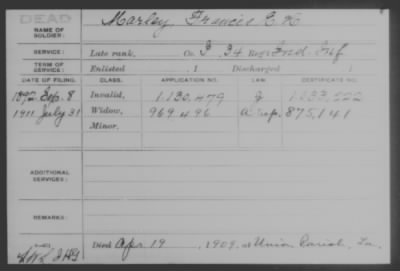 DEAD
NAME OF SOLDIER: Marley Francis E. H.
SERVICE: Late rank, Co. I, 34 Reg't Ind. Inf
TERM OF SERVICE: Enlisted , 1 Discharged , 1
DATE OF FILING. CLASS. APPLICATION NO. LAW CERTIFICATE NO.
1892 Sep. 8 Invalid, 1.130.479
1911 July 31 Widow, 969.496 875,141
Minor,
ADDITIONAL SERVICES:
REMARKS:
Died Apr 19, 1909, at Union Parish, La.